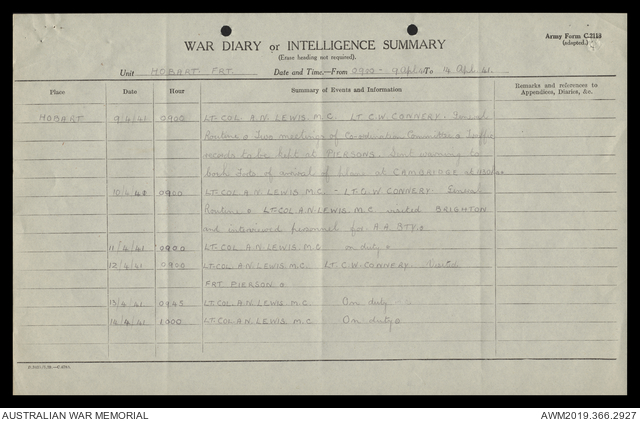 Army Form C.2118
(adapted.)
WAR DIARY or INTELLIGENCE SUMMARY
(Erase heading not required).
Unit HOBART FRT. Date and Time—From 0900 - 9 Apl 41 To 14 Apl 41.
Place Date Hour Summary of Events and Information Remarks and references to
Appendices, Diaries, &c.
HOBART 9/4/41 0900 LT-COL A.N. LEWIS. M.C. LT C.W. CONNERY. General
Routine Two meetings of Co-ordination Committee Traffic
records to be kept at PIERSONS. Sent warning to
both forts of arrival of plane at CAMBRIDGE at
10/4/41 0900 LT-COL A.N. LEWIS M.C. - LT. C.W. CONNERY. General
Routine LT-COL A.N. LEWIS M.C. visited BRIGHTON
and interviewed personnel for A.A. BTY
11/4/41 0900 LT-COL A.N. LEWIS M.C. on duty
12/4/41 0900 LT-COL A.N. LEWIS M.C. LT. C.W. CONNERY. Visited
FRT PIERSON
13/4/41 0945 LT-COL. A.N. LEWIS M.C. On duty
14/4/41 1000 LT-COL A.N. LEWIS. M.C. On duty
AUSTRALIAN WAR MEMORIAL AWM2019.366.2927